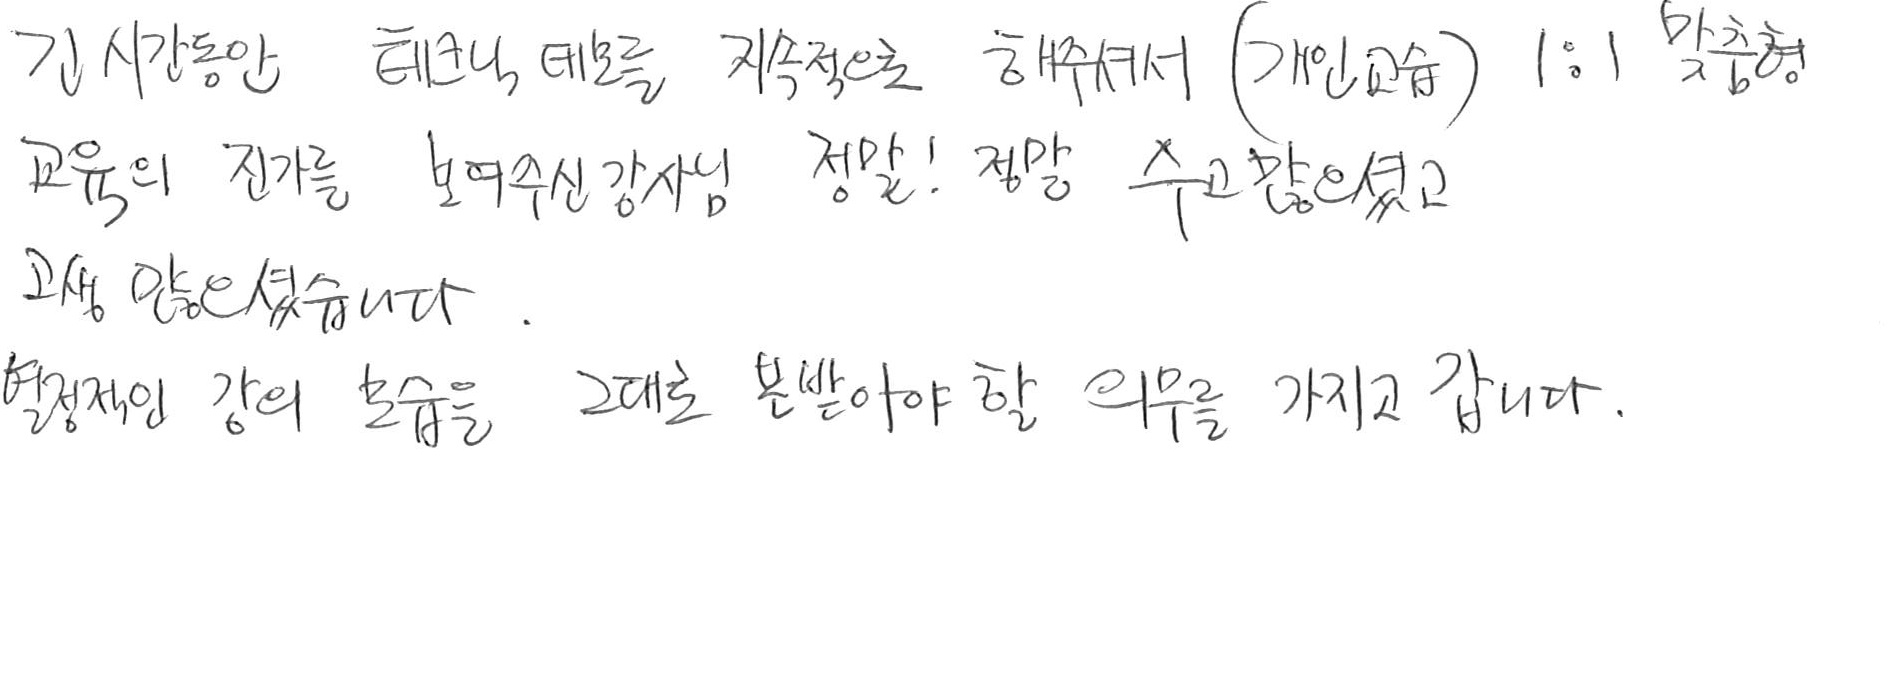 긴 시간동안 테크닉 데모를 지속적으로 해주셔서 (개인교습) 1:1 맞춤형
교육의 진가를 보여주신 강사님 정말! 정말 수고많으셨고
고생 많으셨습니다.
열정적인 강의 모습을 그대로 본받아야 할 의무를 가지고 갑니다.